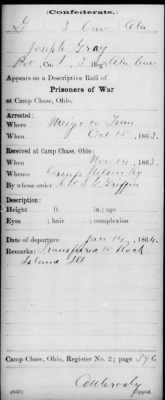 Confederate.
G 3 Cav Ala
Joseph Gray
Pvt, Co. 3 Reg't Ala Cav
Appears on a Descriptive Roll of
Prisoners of War
at Camp Chase, Ohio,
Arrested:
Where Meigs Co Tenn
When Oct 15, 1863.
Received at Camp Chase, Ohio,
When Nov 14, 1863.
Where Camp Nelson Ky
By whose order Col S G Griffin
Description:
Height ft. in.; age
Eyes ; hair ; complexion
Date of departure Jan 14, 1864.
Remarks: Transferred to Rock
Island Ill
Camp Chase, Ohio, Register No. 2; page 396
Copyist.